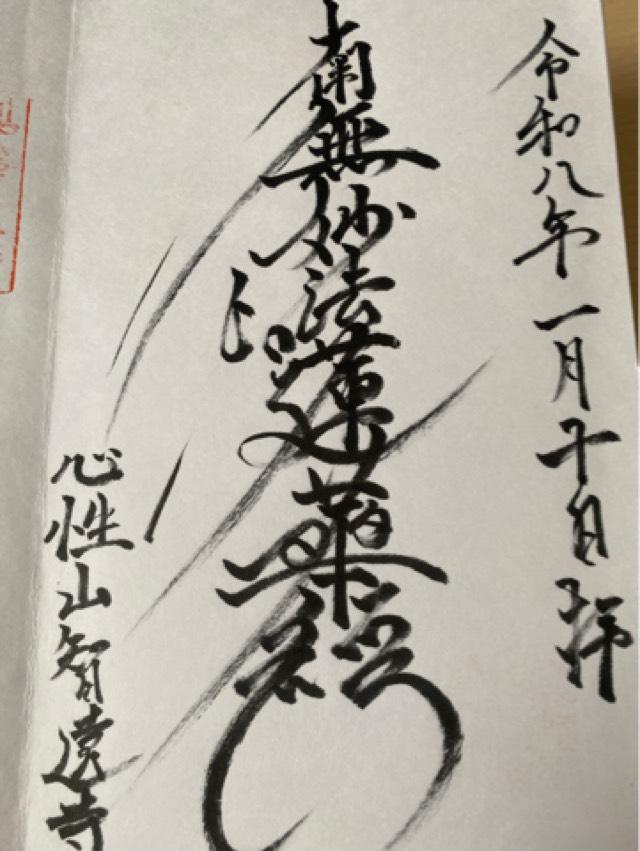 令和八年一月十日 拝
南無妙法蓮華経
心性山智遠寺